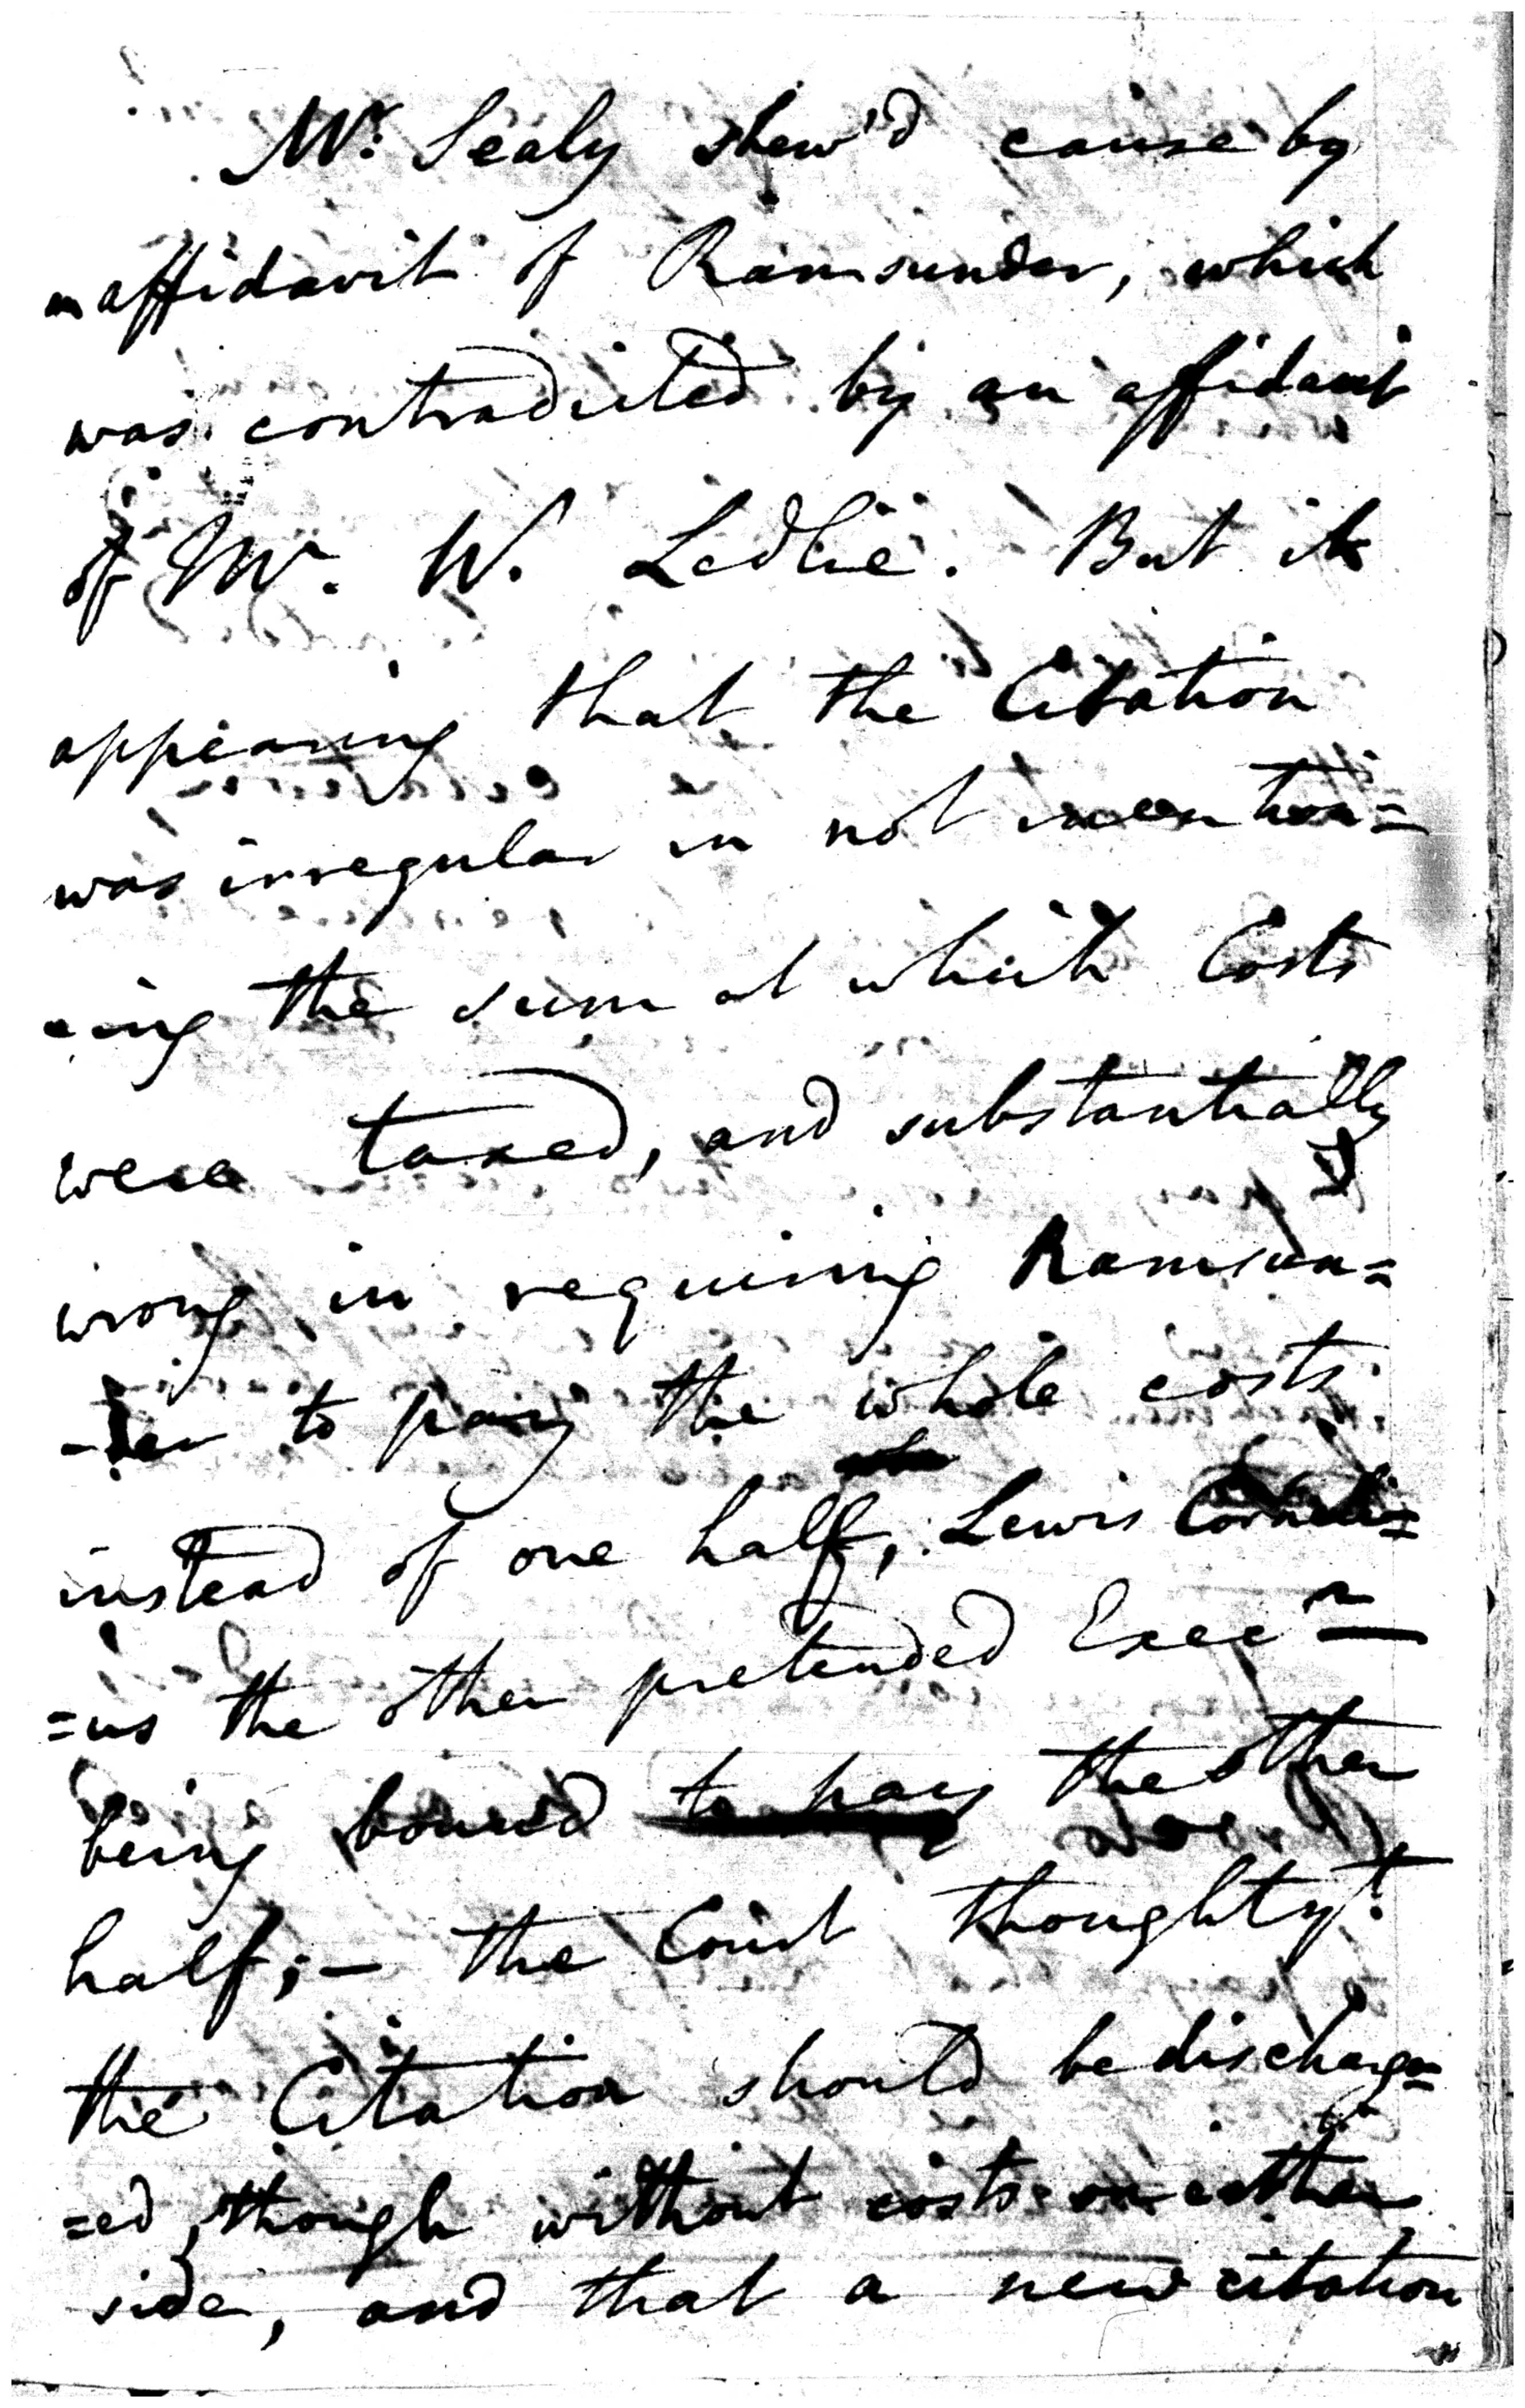 Mr. Sealy shew'd cause by
an affidavit of Ramsunder, which
was contradicted by an affidavit
of Mr. W. Ledlie. But it
appearing that the Citation
was irregular in not mention=
=ing the sum at which Costs
were taxed, and substantially
wrong in requiring Ramsun=
-der to pay the whole costs
instead of one half, Lewis Corneli=
=us the other pretended Exec.r
being bound to pay the other
half;- the Court thought yt.
the Citation should be discharg=
=ed, though without costs on either
side, and that a new citation